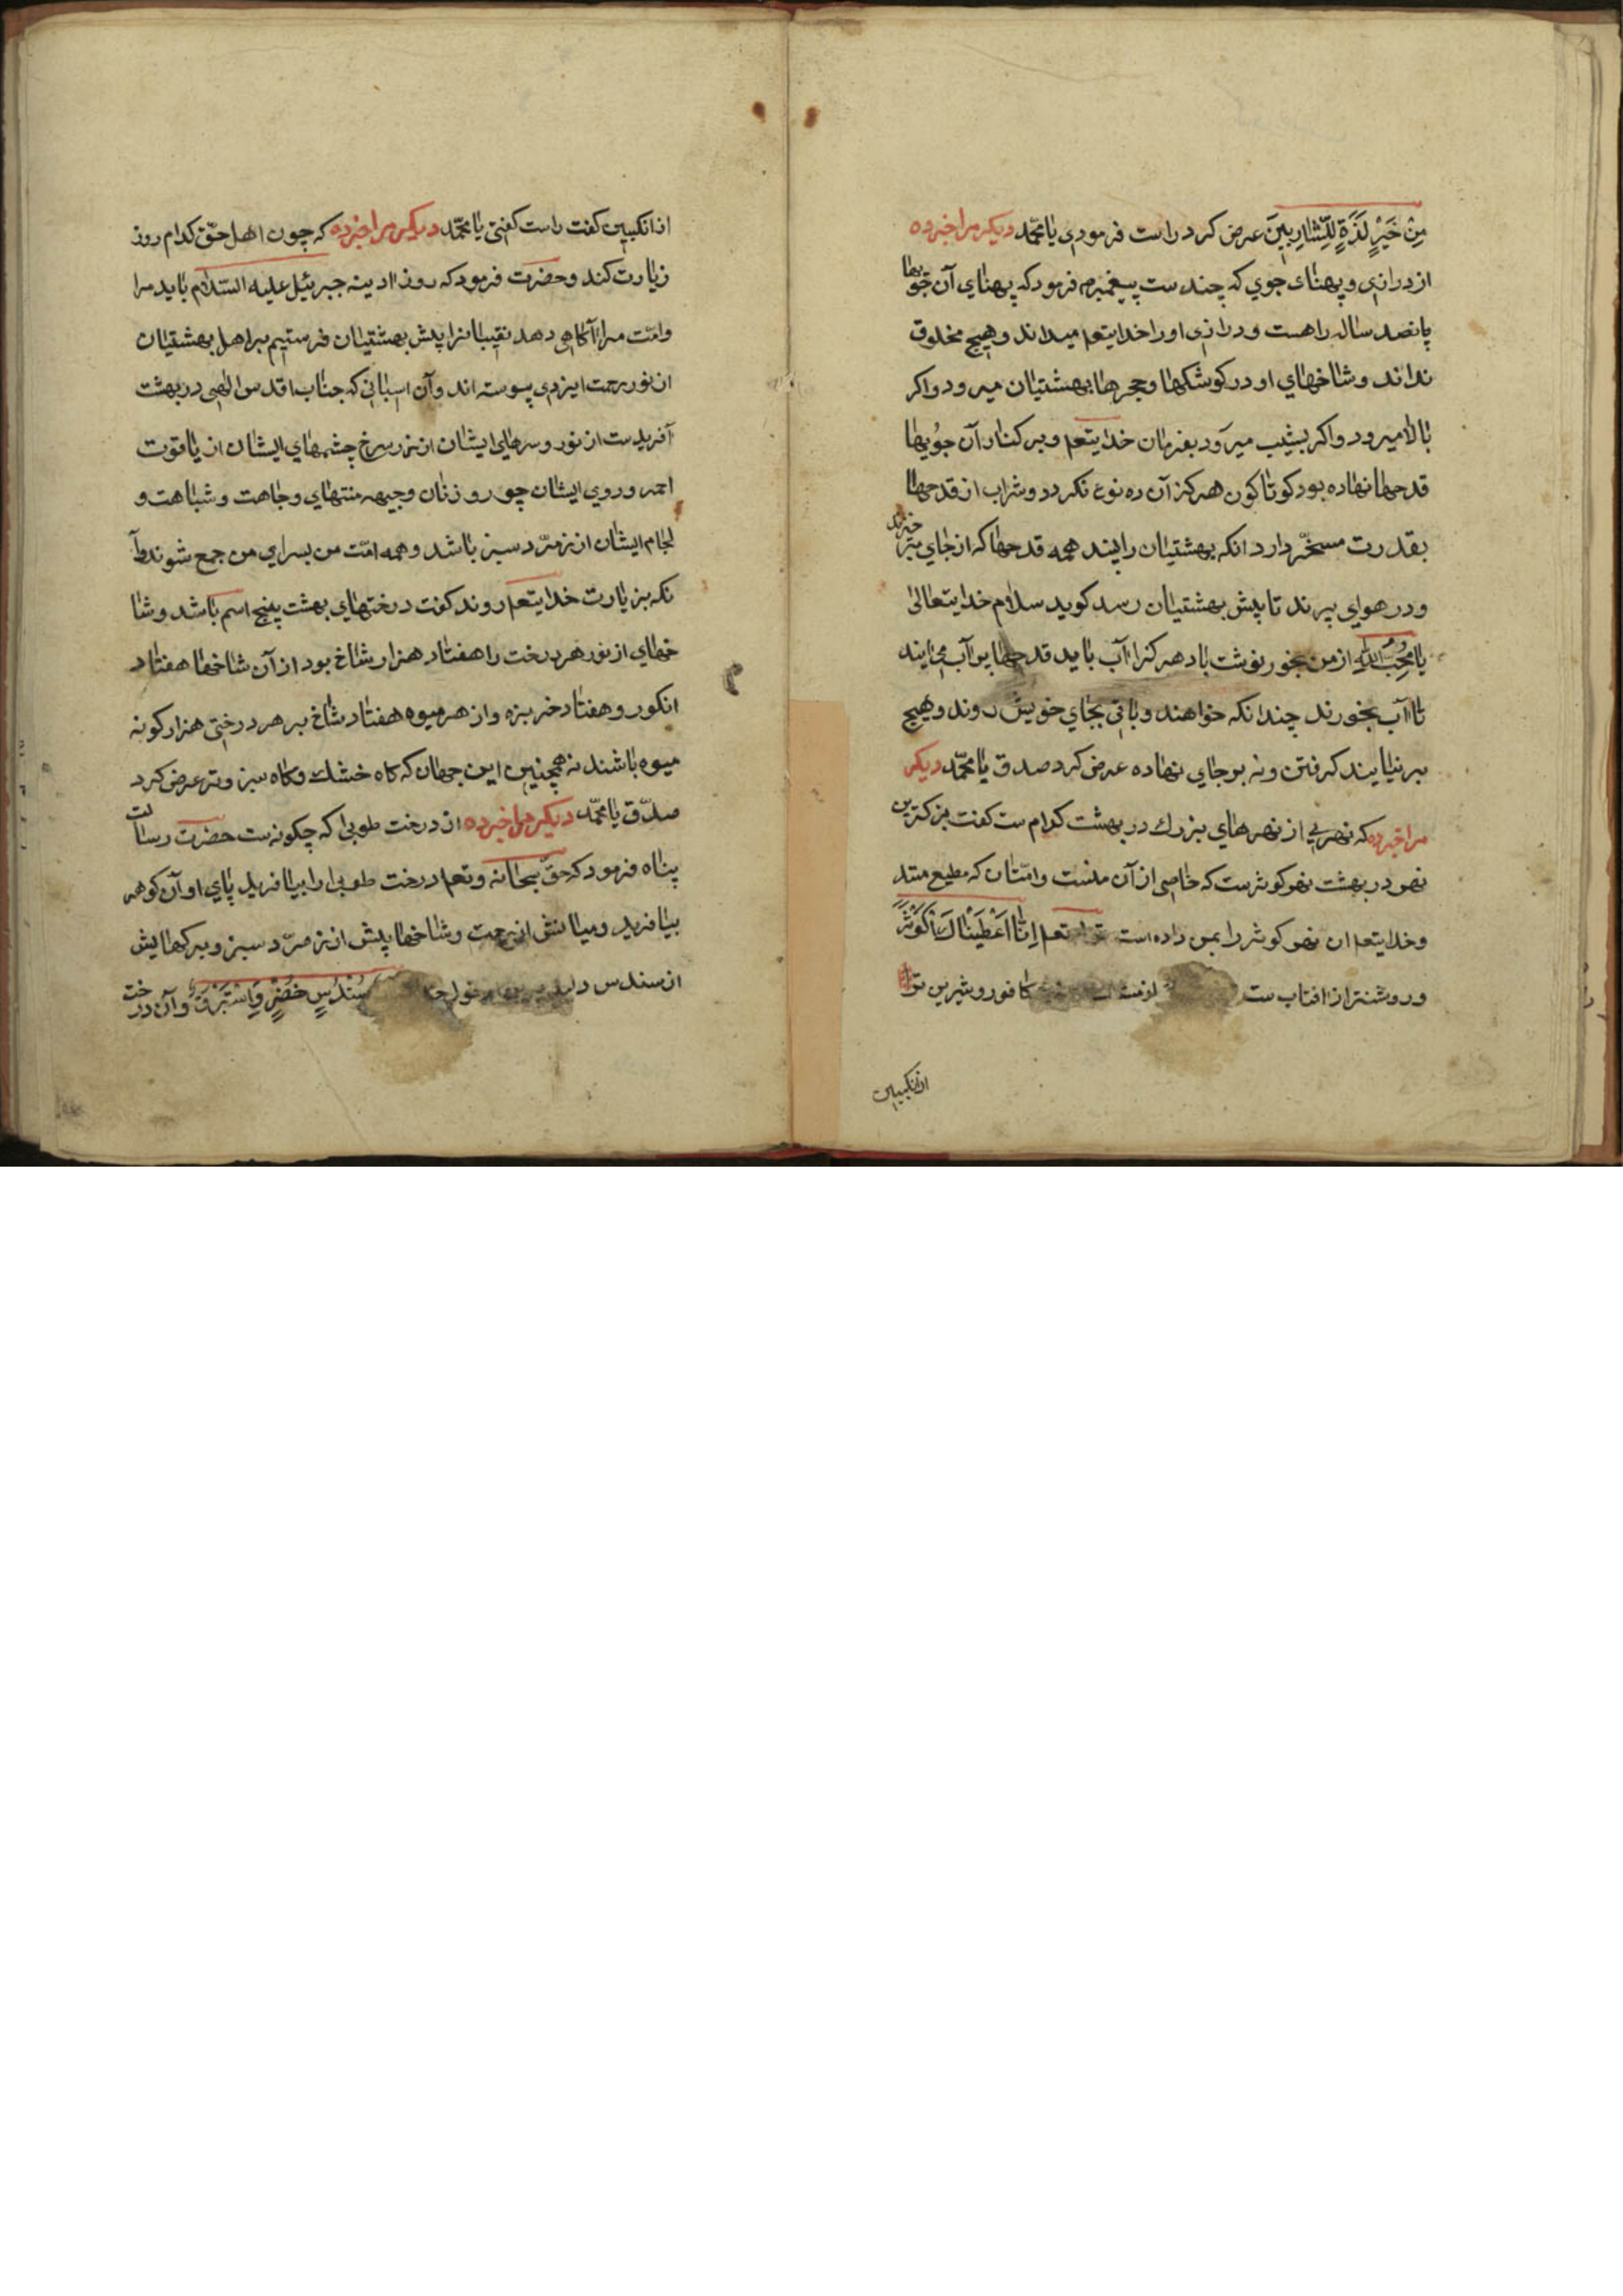 مِنْ خَمْرٍ لَذَّةٍ لِلشَّارِبِينَ عرض کرد راست فرمودي یا محمّد دیکر مرا خبر ده
از درازي و پهناي جوي که چند ست پیغمبرم فرمود که پهناي آن جویها
پانصد ساله راهست و درازي او را خدایتعم میداند و هیچ مخلوق
نداند و شاخهاي او در کوشکها و حجرها بهشتیان میرود و اکر
بالا میرود و اکر بشیب میرود بفرمان خدایتعم و بر کنار آن جویها
قدحها نهاده بود کوناکون هرکز آن ده نوع نکردد و شراب از قدحها
بقدرت مسخّر دارد انکه بهشتیان را بیند همه قدحها که از جاي خیزند
و در هواي پرند تا پیش بهشتیان رسد کوید سلام خدایتعالی
یا محبّ اللّه از من بخور نوشت باد هر کرا آب باید قدحها بر آب
تا آب بخورند چندانکه خواهند و باقي بجاي خویش روند و هیچ
بر نیایند کرفتن و نه بر جاي نهاده عرض کرد صدق یا محمّد دیکر
مرا خبر ده که نهري از نهرهاي بزرك در بهشت کدام ست کفت بزرکترین
نهر در بهشت نهر کوثر ست که خاصي از آن منست و امّتان که مطیع منند
و خدایتعم ان نهر کوثر را بمن داده است تعم اِنّا اَعْطَیْنَاكَ الْکَوْثَرَ
و روشنتر از افتاب ست کافور و شیرین تر
از انکبین
از انکبین کفت راست کفتي یا محمّد دیکر مرا خبر ده که چون اهل حقّ کدام روز
زیارت کند و حضرت فرمود که روز ادینه جبرئیل علیه السّلام باید مرا
و امّت مرا آکاهي دهد نقیبانرا پیش بهشتیان فرستیم بر اهل بهشتیان
از نور رحمت ایزدي پیوسته اند و آن اسباني که جناب اقدس الهي در بهشت
آفریدست از نور و سرهاي ایشان از زر سرخ چشمهاي ایشان از یاقوت
احمر و روي ایشان چو رو زنان وجیهه منتهاي وجاهت و شباهت و
لجام ایشان از زمرّد سبز باشد و همه امّت من بسراي من جمع شوند آ
نکه بزیارت خدایتعم روند کفت درختهاي بهشت پنج اسم باشد و شا
خهاي از نور هر درخت را هفتاد هزار شاخ بود از آن شاخها هفتاد
انکور و هفتاد خربزه و از هر میوه هفتاد شاخ بر هر درختي هزار کونه
میوه باشند نه همچنین این جهان که کاه خشك و کاه سبز و تر عرض کرد
صدّق یا محمّد دیکر مرا خبر ده از درخت طوبي که چکونه ست حضرت رسالت
پناه فرمود که حقّ سبحانه و تعم درخت طوبي را بیافرید پاي او آن کوهر
بیافرید و میانش از رحمت و شاخهایش از زمرّد سبز و برکهایش
از سندس سُنْدُسٍ خُضْرٍ وَاِسْتَبْرَقٍ و آن درخت